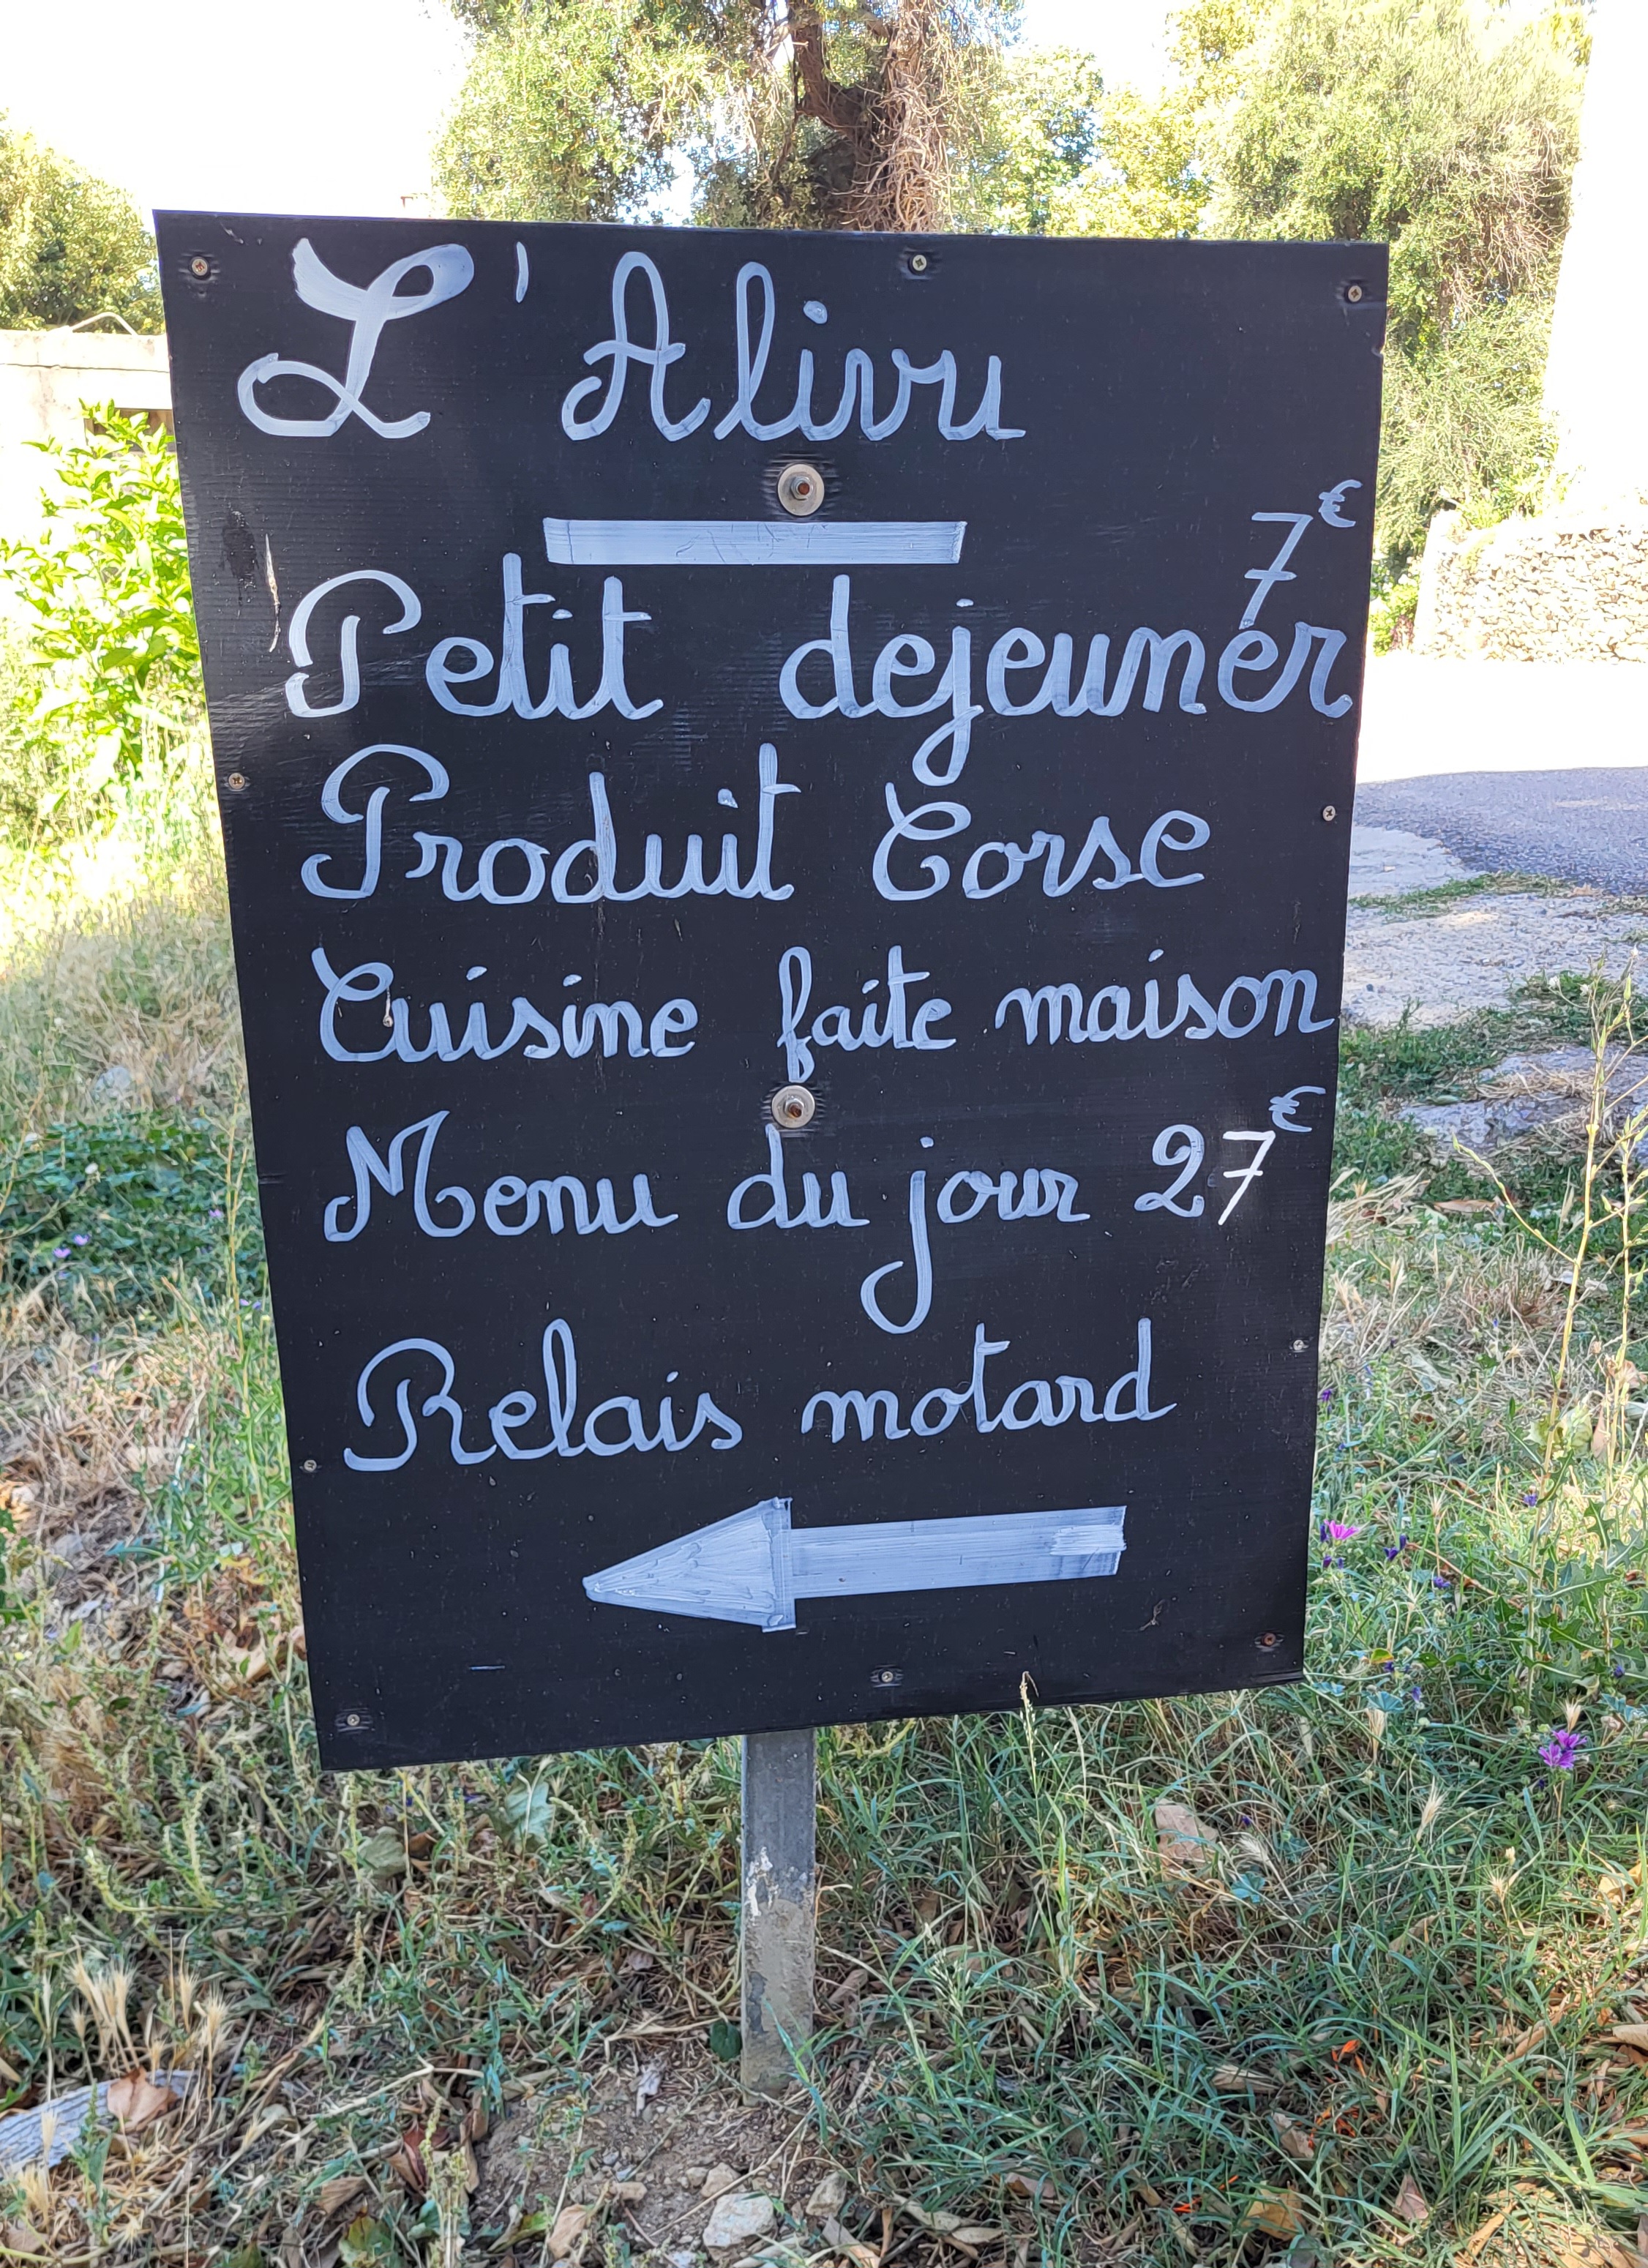 L'Alivu
7€
Petit dejeuner
Produit Corse
Cuisine faite maison
Menu du jour 27€
Relais motard